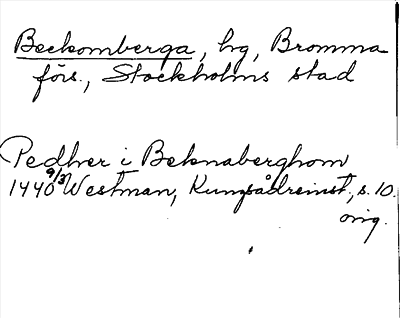 Beckomberga, hg, Bromma
förs., Stockholms stad
Pedher i Beknaberghom
1440 9/3 Westman, Kungsådrainst., s. 10.
orig.